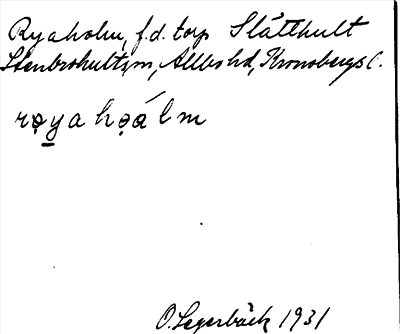 Ryaholm, f.d. torp Slätthult
Stenbrohult sn, Allbo hd, Kronobergs l.
rǫyahǫálm
O. Segerbäck 1931